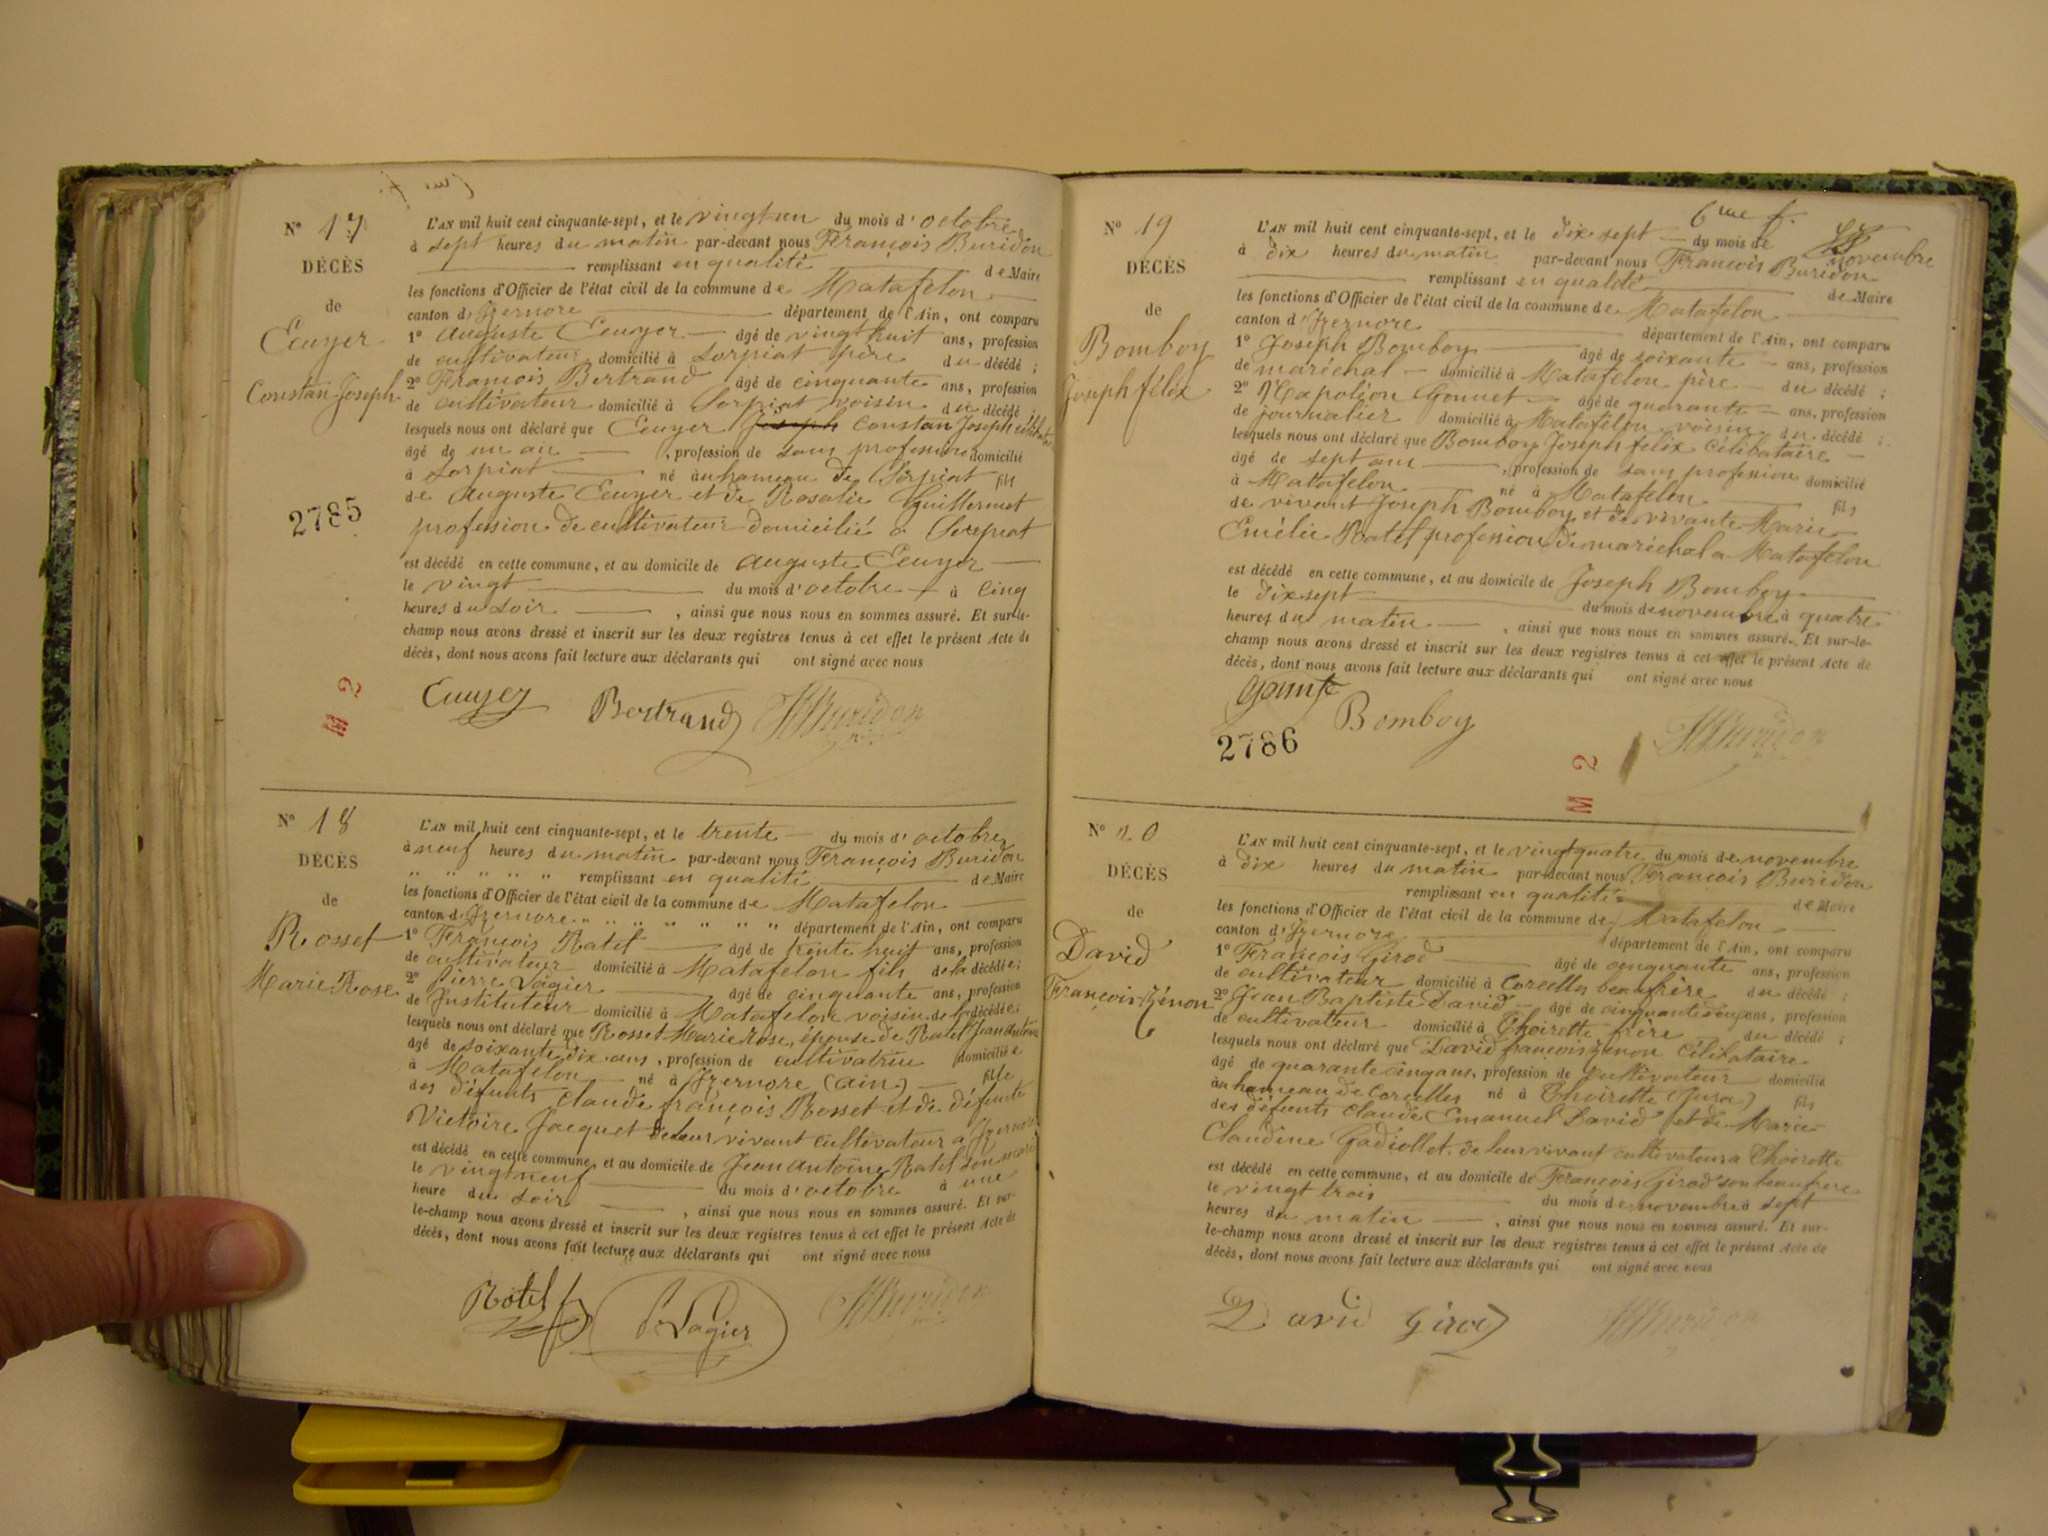 N° 17
DÉCÈS
de
Ecuyer
Constan Joseph
2785
M 2
L'AN mil huit cent cinquante-sept, et le vingt un du mois d'octobre
à sept heures du matin par-devant nous François Buridon
remplissant en qualité de Maire
les fonctions d'Officier de l'état civil de la commune de Matafelon
canton d'Izernore département de l'Ain, ont comparu
1° auguste Ecuyer âgé de vingt huit ans, profession
de cultivateur domicilié à Sorpiat père du décédé ;
2° François Bertrand âgé de cinquante ans, profession
de cultivateur domicilié à Sorpiat voisin du décédé ;
lesquels nous ont déclaré que Ecuyer Joseph constan Joseph célibataire
âgé de un an , profession de sans profession domicilié
à Sorpiat né au hameau de Sorpiat fils
de auguste Ecuyer et de Rosalie Guillermet
profession de cultivateur domicilié à Sorpiat
est décédé en cette commune, et au domicile de auguste Ecuyer
le vingt du mois d'octobre à cinq
heures du soir , ainsi que nous nous en sommes assuré. Et sur-le-
champ nous avons dressé et inscrit sur les deux registres tenus à cet effet le présent Acte de
décès, dont nous avons fait lecture aux déclarants qui ont signé avec nous
Ecuyer Bertrand Buridon
N° 18
DÉCÈS
de
Rosset
Marie Rose
L'AN mil huit cent cinquante-sept, et le trente du mois d'octobre
à neuf heures du matin par-devant nous François Buridon
" " " " " remplissant en qualité de Maire
les fonctions d'Officier de l'état civil de la commune de Matafelon
canton d'Izernore " " " " " " département de l'Ain, ont comparu
1° François Ratel âgé de trente huit ans, profession
de cultivateur domicilié à Matafelon fils de la décédée ;
2° Pierre Lagier âgé de cinquante ans, profession
de Instituteur domicilié à Matafelon voisin de la décédée ;
lesquels nous ont déclaré que Rosset Marie Rose, épouse de Ratel Jean Antoine
âgé de soixante dix ans, profession de cultivatrice domiciliée
à Matafelon né à Izernore (ain) fille
des défunts claude françois Rosset et de défunte
Victoire Jacquet de leur vivant cultivateur a Izernore
est décédé en cette commune, et au domicile de Jean antoine Ratel son mari
le vingt neuf du mois d'octobre à une
heure du soir , ainsi que nous nous en sommes assuré. Et sur-
le-champ nous avons dressé et inscrit sur les deux registres tenus à cet effet le présent Acte de
décès, dont nous avons fait lecture aux déclarants qui ont signé avec nous
Ratel P. Lagier Buridon
6me f.
N° 19
DÉCÈS
de
Bomboy
Joseph félix
L'AN mil huit cent cinquante-sept, et le dix sept du mois de novembre
à dix heures du matin par-devant nous François Buridon
remplissant en qualité de Maire
les fonctions d'Officier de l'état civil de la commune de Matafelon
canton d'Izernore département de l'Ain, ont comparu
1° Joseph Bomboy âgé de soixante ans, profession
de maréchal domicilié à Matafelon père du décédé ;
2° Napoléon Gonnet âgé de quarante ans, profession
de journalier domicilié à Matafelon voisin du décédé ;
lesquels nous ont déclaré que Bomboy Joseph félix célibataire
âgé de sept ans , profession de sans profession domicilié
à Matafelon né à Matafelon fils
de vivant Joseph Bomboy et de vivante Marie
Emélie Ratel profession de maréchal a Matafelon
est décédé en cette commune, et au domicile de Joseph Bomboy
le dix sept du mois de novembre à quatre
heures du matin , ainsi que nous nous en sommes assuré. Et sur-le-
champ nous avons dressé et inscrit sur les deux registres tenus à cet effet le présent Acte de
décès, dont nous avons fait lecture aux déclarants qui ont signé avec nous
Bomboy Buridon
2786
M 2
N° 20
DÉCÈS
de
David
François Zénon
L'AN mil huit cent cinquante-sept, et le vingt quatre du mois de novembre
à dix heures du matin par-devant nous François Buridon
remplissant en qualité de Maire
les fonctions d'Officier de l'état civil de la commune de Matafelon
canton d'Izernore département de l'Ain, ont comparu
1° François Girod âgé de cinquante ans, profession
de cultivateur domicilié à Corcelles beaufrère du décédé ;
2° Jean Baptiste David âgé de cinquante ans, profession
de cultivateur domicilié à Thoirette frère du décédé ;
lesquels nous ont déclaré que David françois Zénon célibataire
âgé de quarante cinq ans, profession de cultivateur domicilié
au hameau de Corcelles né à Thoirette (Jura) fils
des défunts claude Emanuel David et de Marie
Claudine Gadiollet de leur vivant cultivateur a Thoirette
est décédé en cette commune, et au domicile de François Girod son beaufrère
le vingt trois du mois de novembre à sept
heures du matin , ainsi que nous nous en sommes assuré. Et sur-
le-champ nous avons dressé et inscrit sur les deux registres tenus à cet effet le présent Acte de
décès, dont nous avons fait lecture aux déclarants qui ont signé avec nous
David Girod Buridon